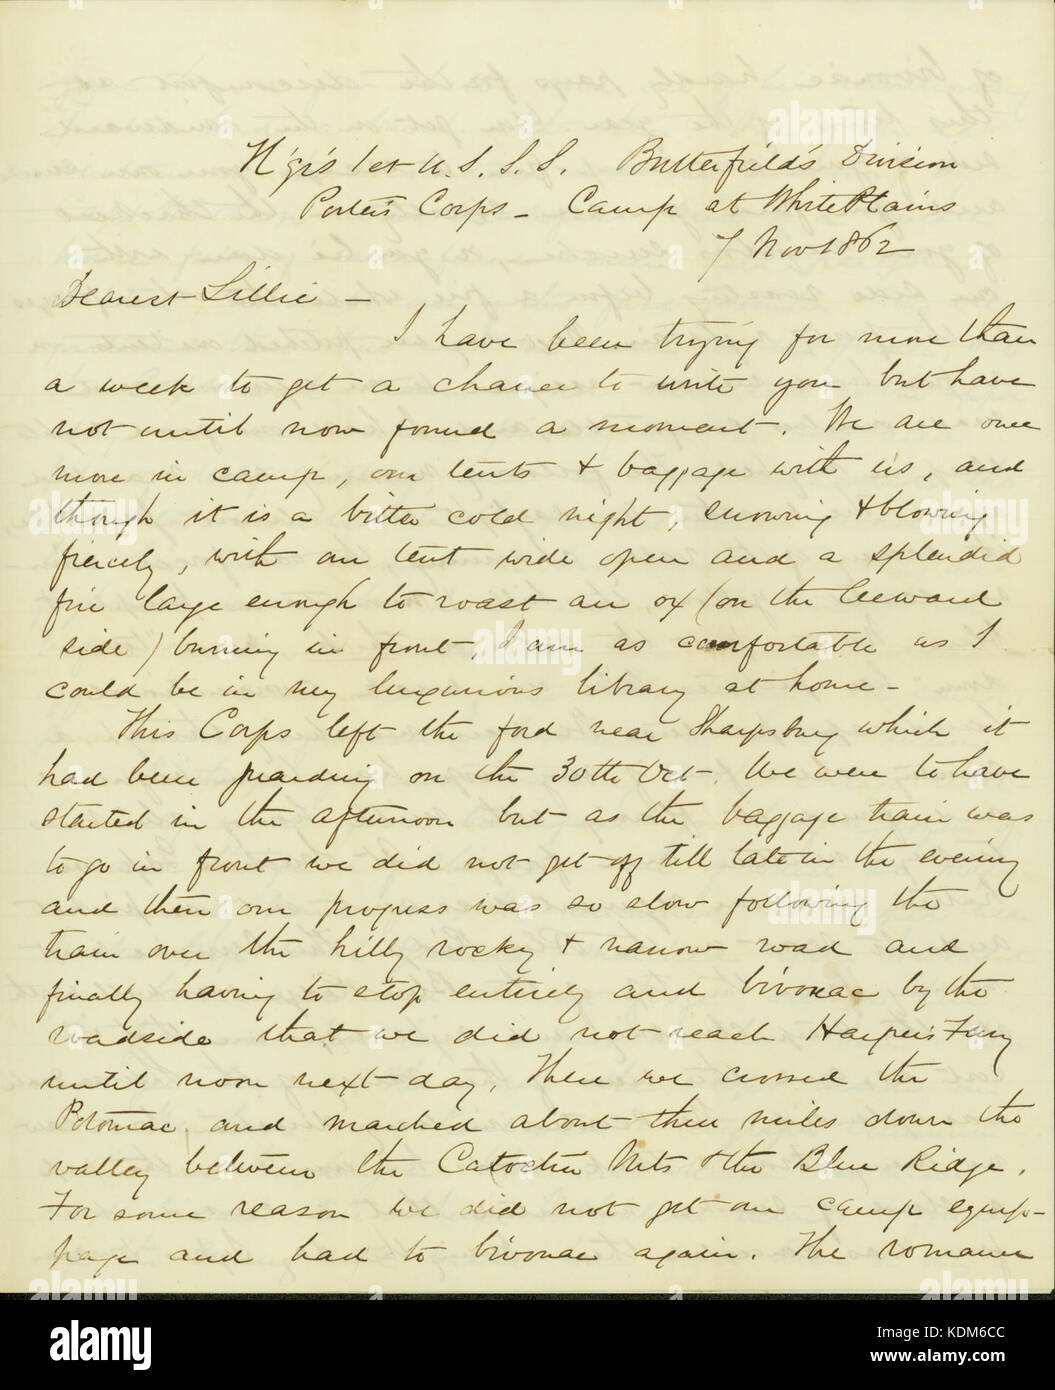 H'qr's 1st U.S.S.S. Butterfield's Division
Porter's Corps - Camp at White Plains
7 Nov 1862
Dearest Lillie -
I have been trying for more than
a week to get a chance to write you but have
not until now found a moment. We are once
more in camp, our tents & baggage with us, and
though it is a bitter cold night, snowing & blowing
fiercely, with our tent wide open and a splendid
fire large enough to roast an ox (on the leeward
side) burning in front, I am as comfortable as I
could be in my luxurious library at home -
This Corps left the ford near Sharpsburg which it
had been guarding on the 30th Oct. We were to have
started in the afternoon but as the baggage train was
to go in front we did not get off till late in the evening
and then our progress was so slow following the
train over the hilly rocky & narrow road and
finally having to stop entirely and bivouac by the
roadside that we did not reach Harper's Ferry
until noon next day. There we crossed the
Potomac and marched about three miles down the
valley between the Catoctin Mts & the Blue Ridge.
For some reason we did not get our camp equip-
page and had to bivouac again. The romance
alamy
KDM6CC
www.alamy.com